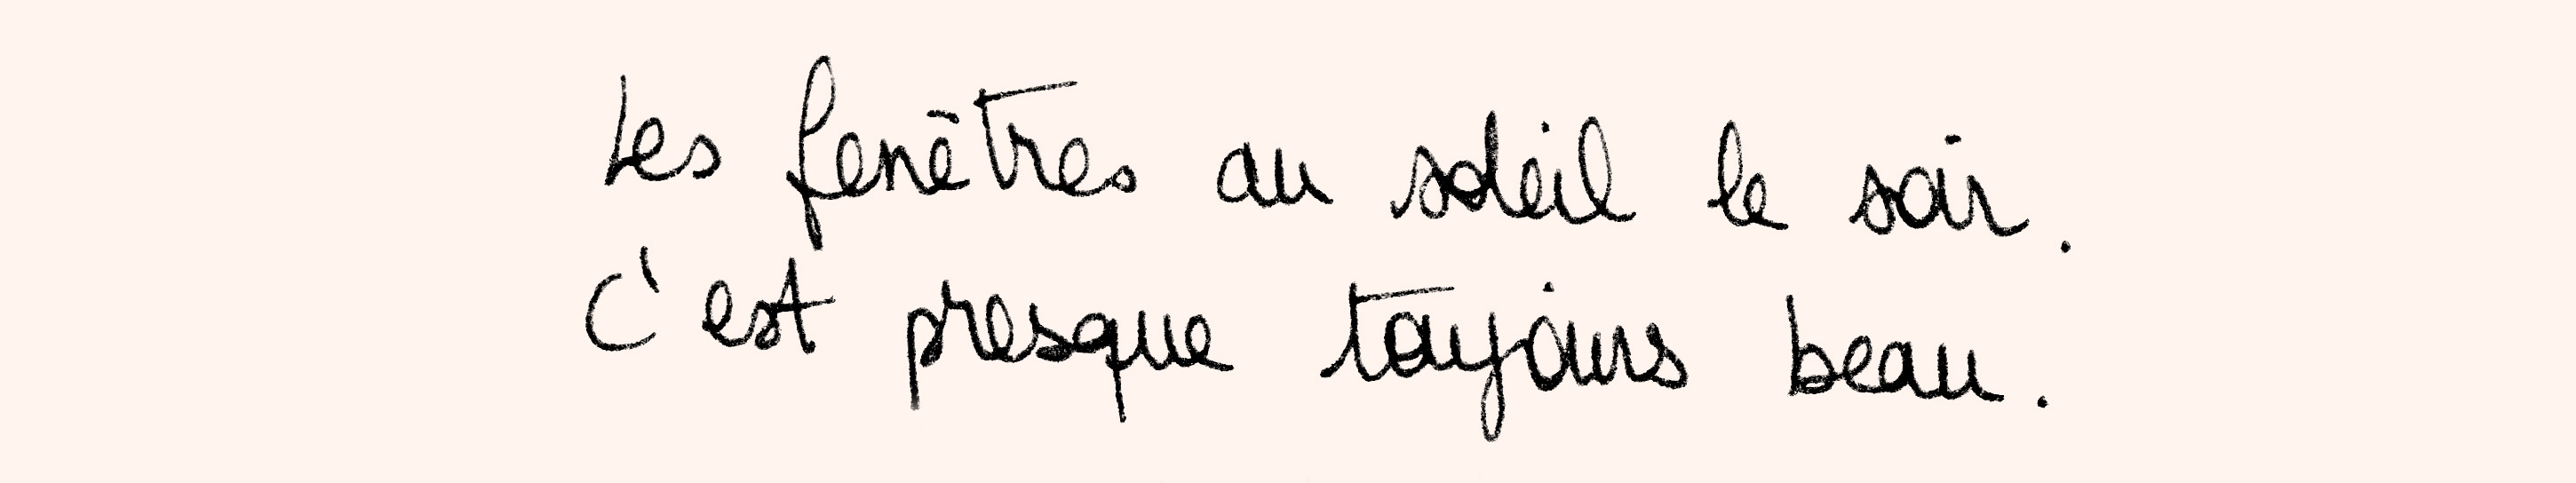 Les fenêtres au soleil le soir.
C'est presque toujours beau.